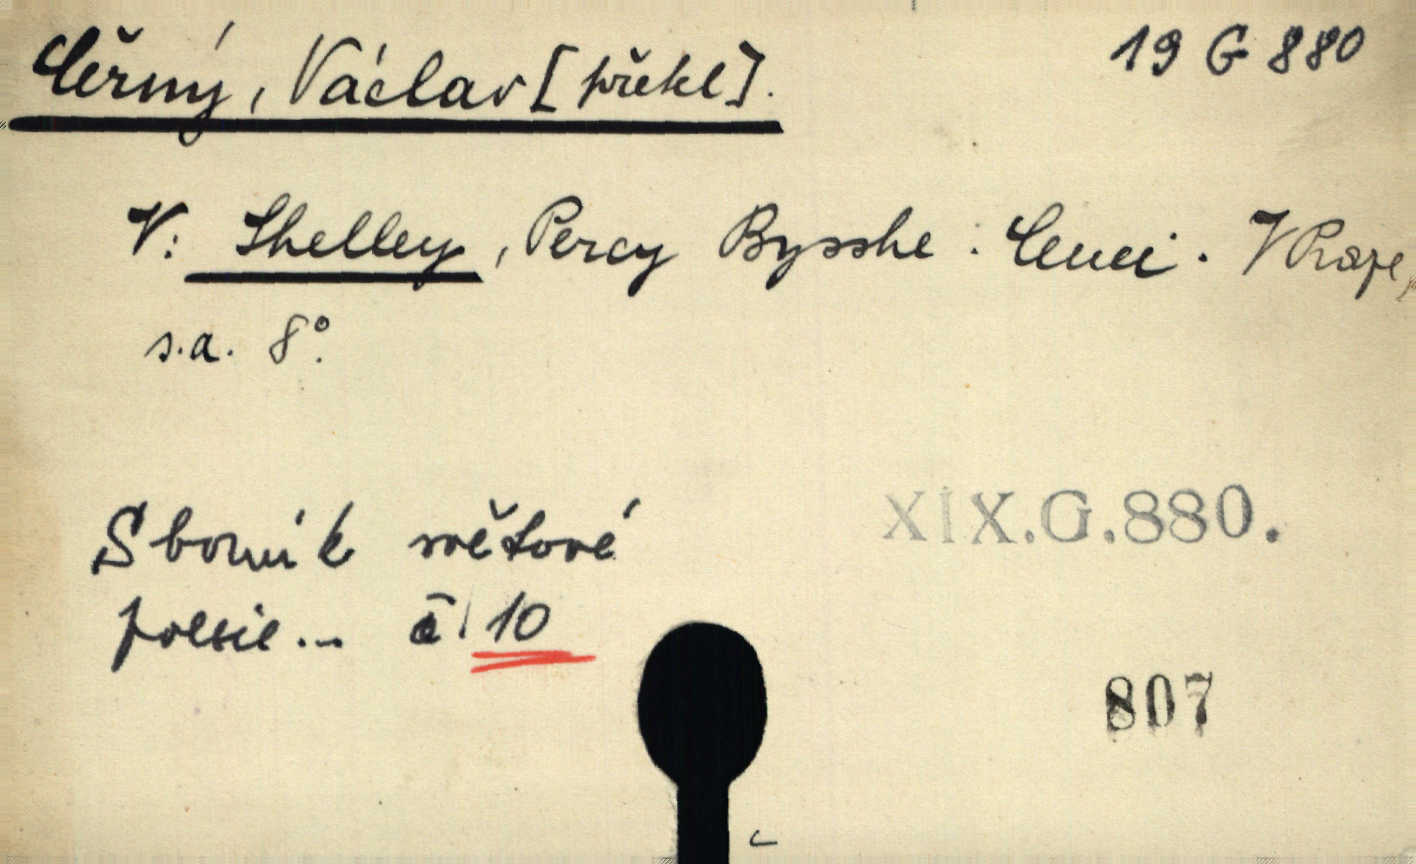 Čěrný, Václav [překl]. 19 G 880
V: Shelley, Percy Bysshe: Cenci. V Praze,
s.a. 8°.
Sborník světové XIX.G.880.
poesie... č. 10
807